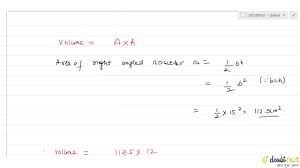 Volume = A×h
Area of right angled isosceles Δ = 1/2 bh
= 1/2 b² (∵ b=h)
= 1/2 × 15² = 112.5 cm²
∴ Volume = 112.5 × 12
doubtnut